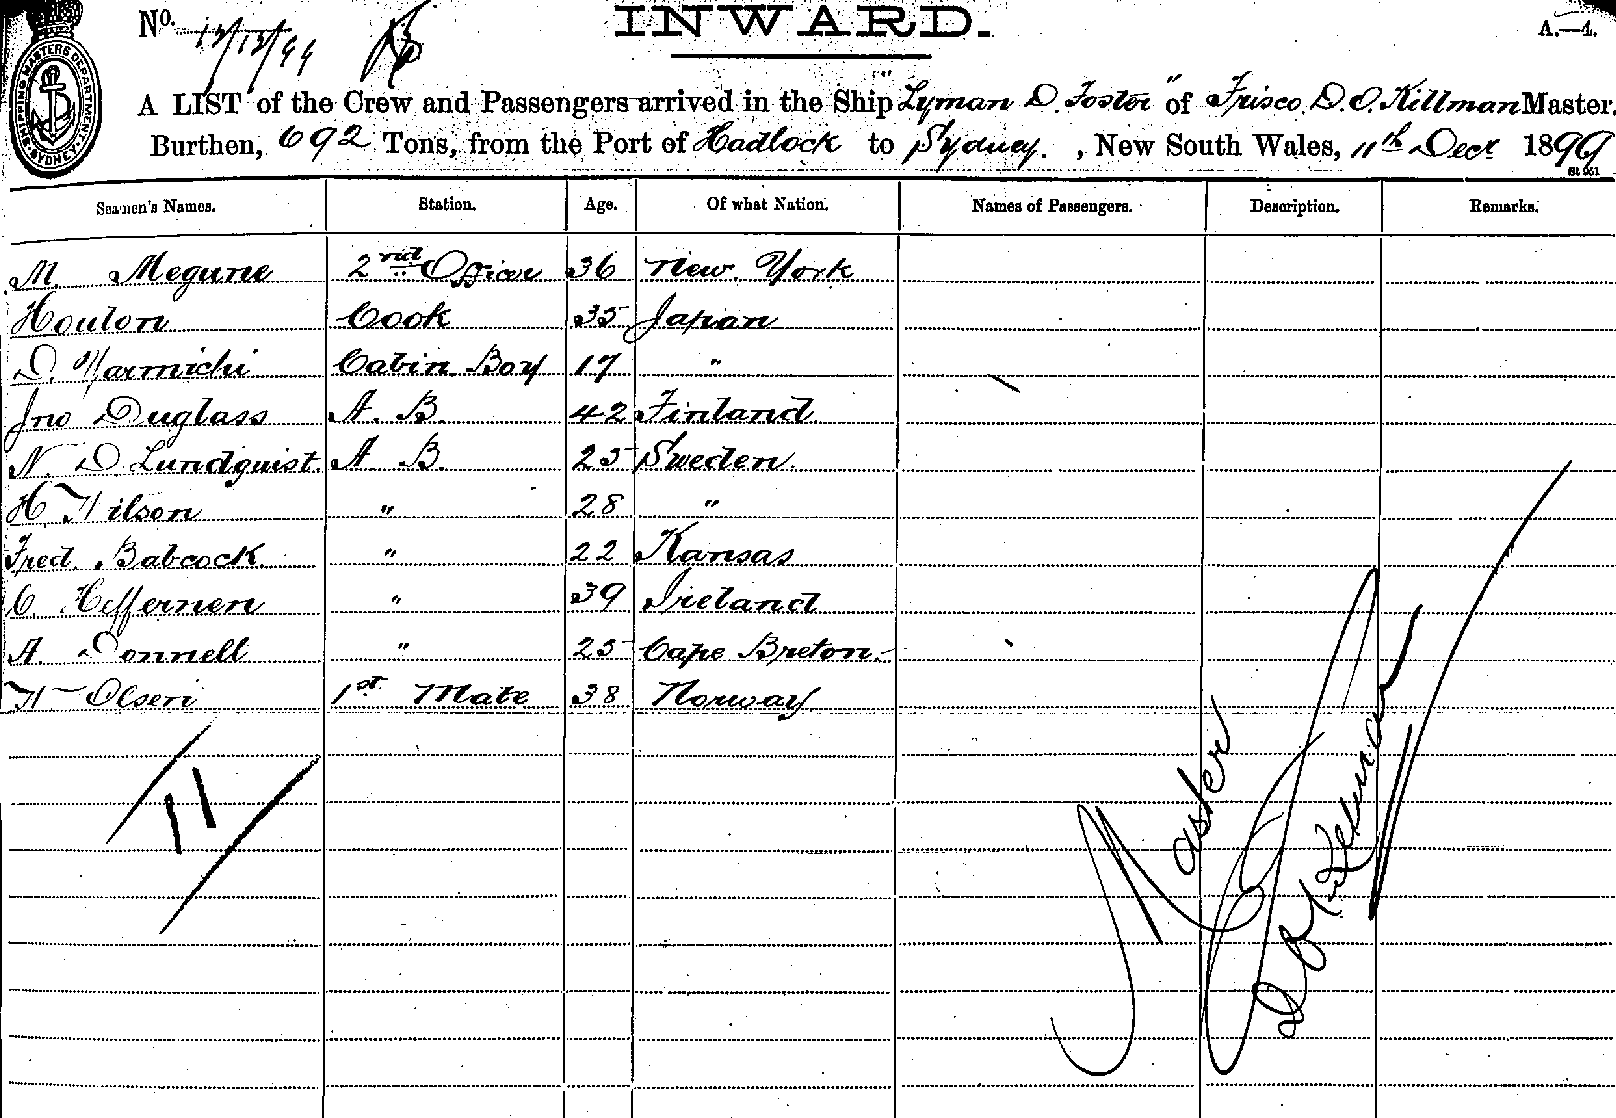 SHIPPING MASTERS DEPARTMENT SYDNEY
No. 12/12/99 INWARD. A.—4.
A LIST of the Crew and Passengers arrived in the Ship "Lyman D. Foster" of Frisco, D. O. Killman Master,
Burthen, 692 Tons, from the Port of Hadlock to Sydney, New South Wales, 11th Decr 1899
Seamen's Names. Station. Age. Of what Nation. Names of Passengers. Description. Remarks.
M. Megune 2nd Officer 36 New York
Houton Cook 35 Japan
D. Yarmichi Cabin Boy 17 "
Jno Duglass A. B. 42 Finland
N. D Lundquist A B. 25 Sweden
H Wilson " 28 "
Fred. Babcock " 22 Kansas
C. Heffernen " 39 Ireland
A. Donnell " 25 Cape Breton
H Olsen 1st Mate 38 Norway
11
Master
D O Killman